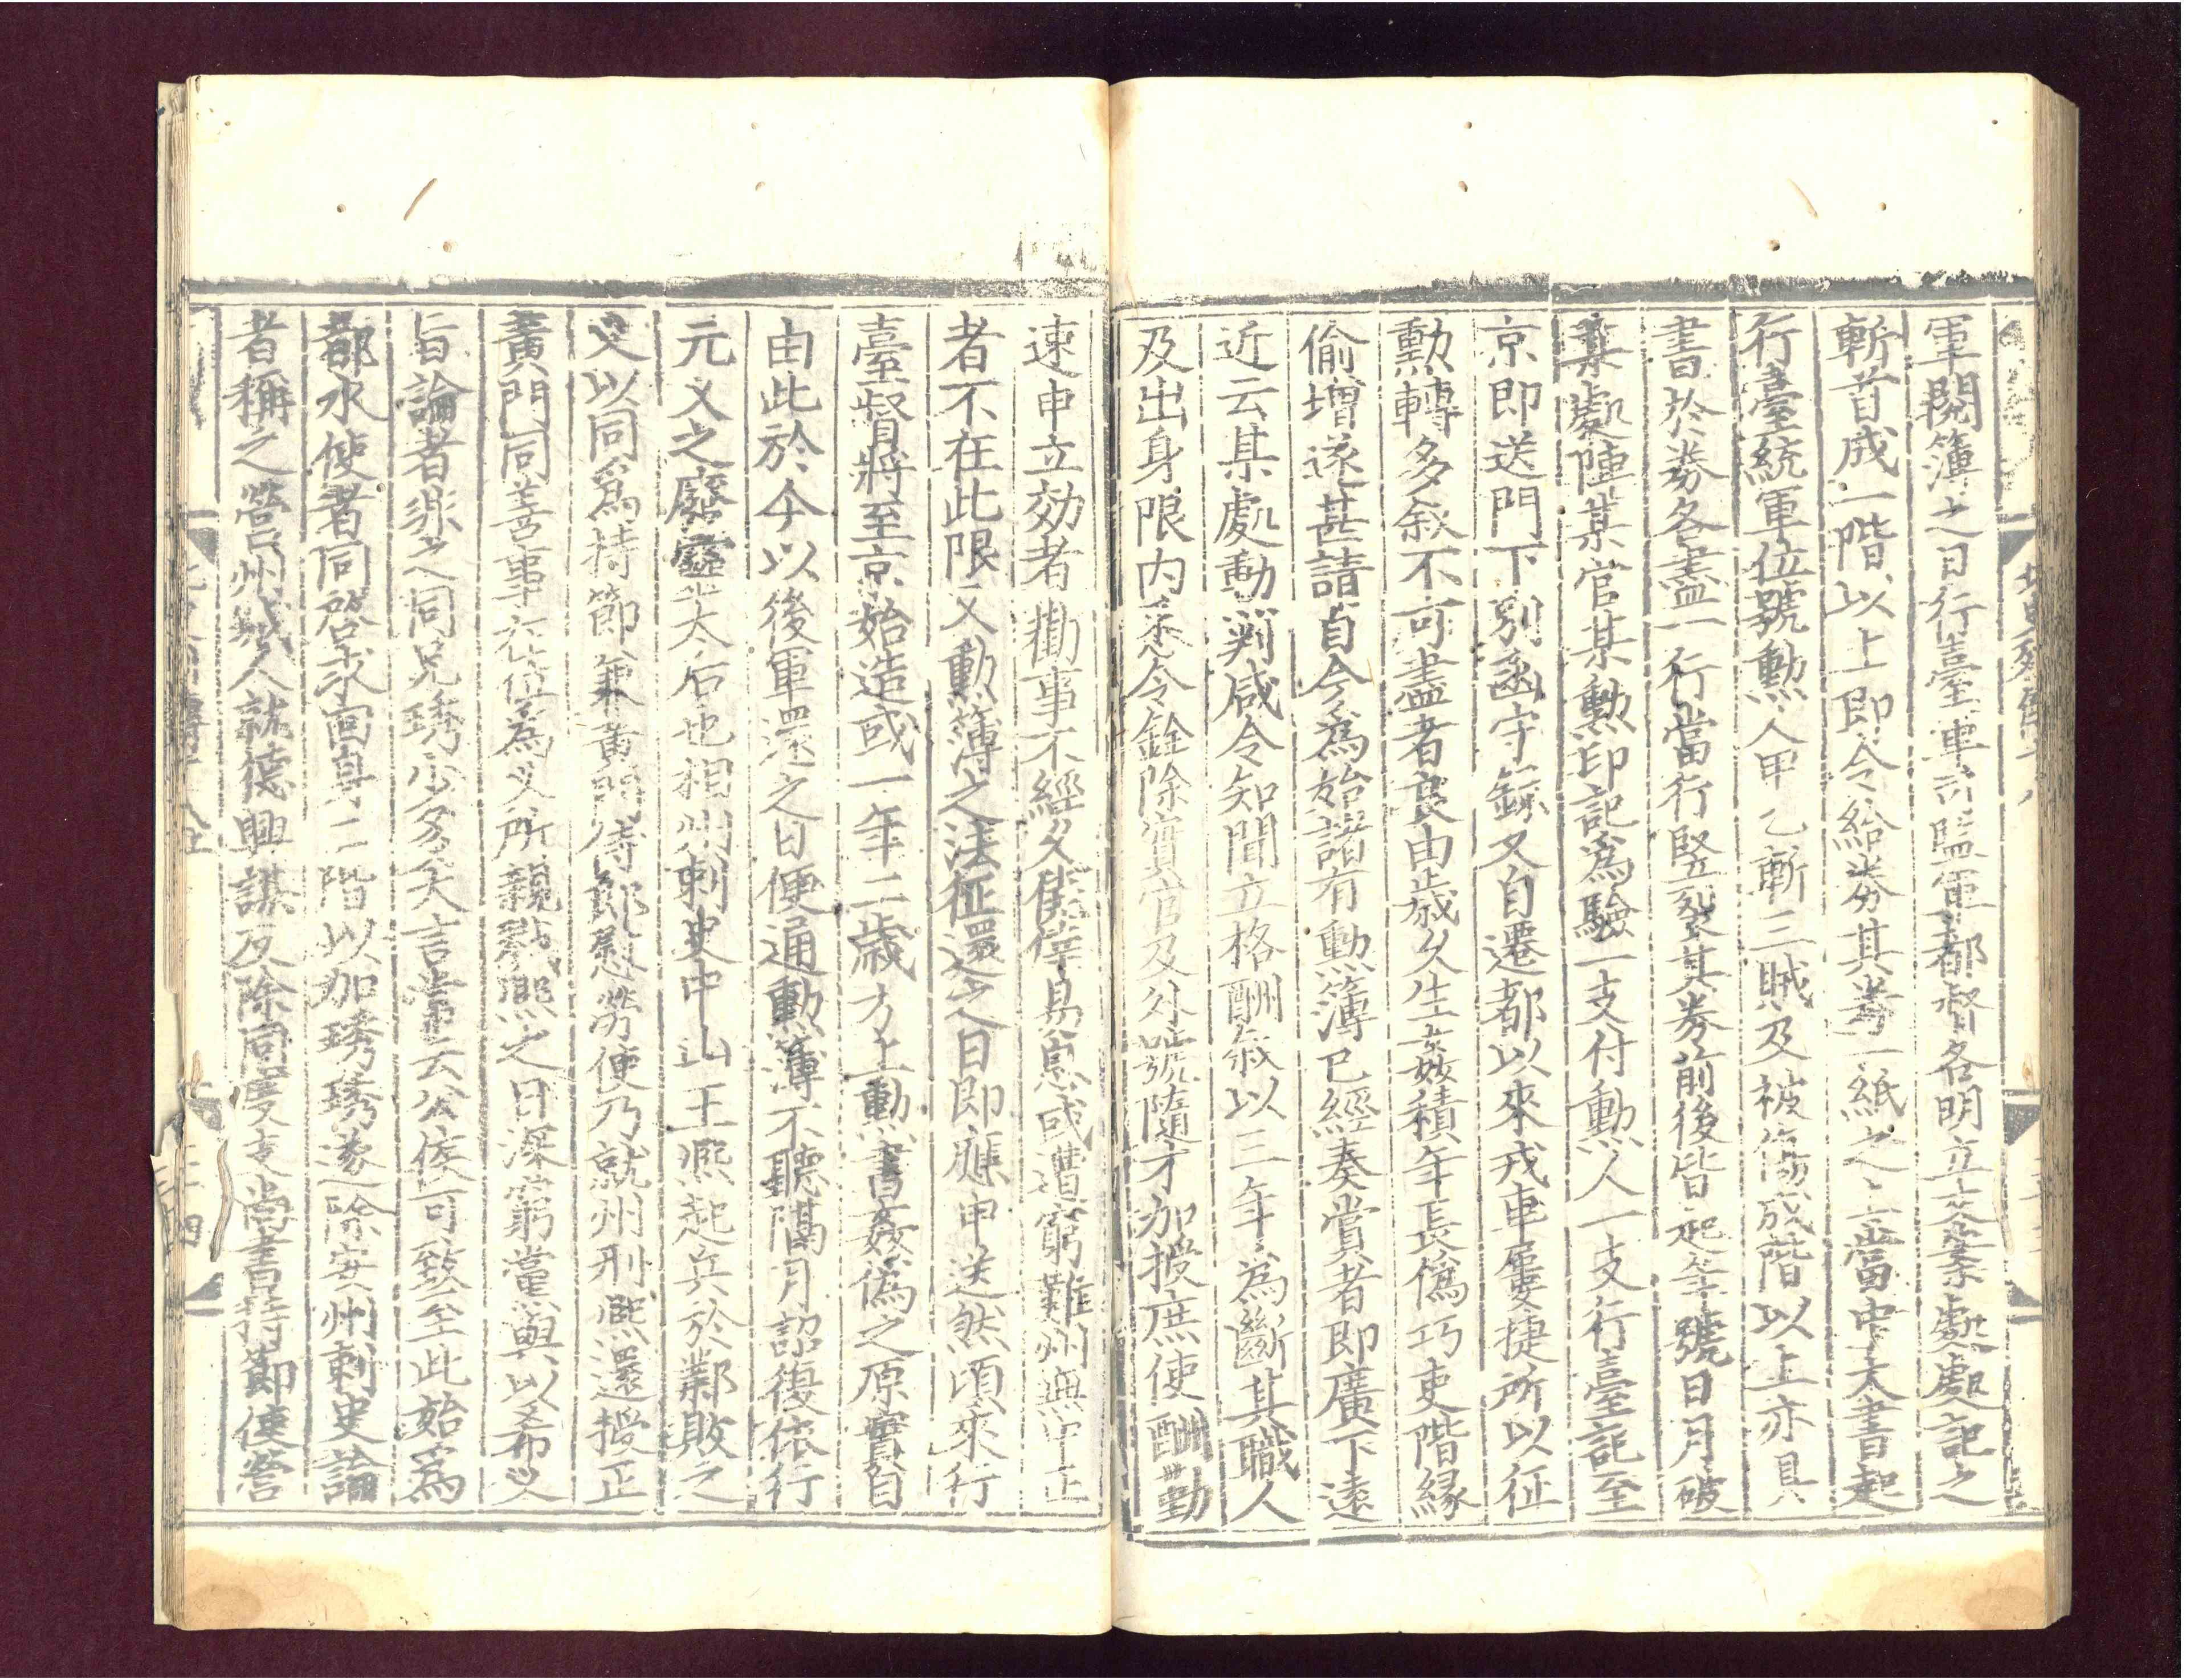 軍閱簿之日行臺軍司監軍都督各明立文案處處記之
斬首成一階以上即令給券其券一紙之上當中大書起
行臺統軍位號勳人甲乙斬三賊及被傷成階以上亦具
書於券各盡一行當行竪裂其券前後皆起年號日月破
某處陣某官某勳印記爲驗一支付勳人一支行臺記至
京即送門下別函守錄又自遷都以來戎車屢捷所以征
勳轉多叙不可盡者良由歲久生姦積年長僞巧吏階緣
偷增遂甚請自今爲始諸有勳簿已經奏賞者即廣下遠
近云某處勳判咸令知聞立格酬叙以三年爲斷其職人
及出身限内悉令銓除實官及外號隨才加授庶使酬勤
速申立効者勸事不經久僥倖易息或遭窮難州無中正
者不在此限又勳簿之法征還之日即應申送然頃來行
臺督將至京始造或一年二歲方上勳書姦僞之原實自
由此於今以後軍還之日便通勳簿不聽隔月詔復依行
元义之廢靈太后也相州刺史中山王熙起兵於鄴敗之
义以同爲持節兼黄門侍郎慰勞使乃就州刑熙還授正
黄門同善事在位爲义所親戮熙之日深窮黨與以希义
旨論者非之同兄琇少多大言常云公侯可致至此始爲
都水使者同啓求回身二階以加琇琇遂除安州刺史論
者稱之營州城人就德興謀反除同度支尚書持節使營